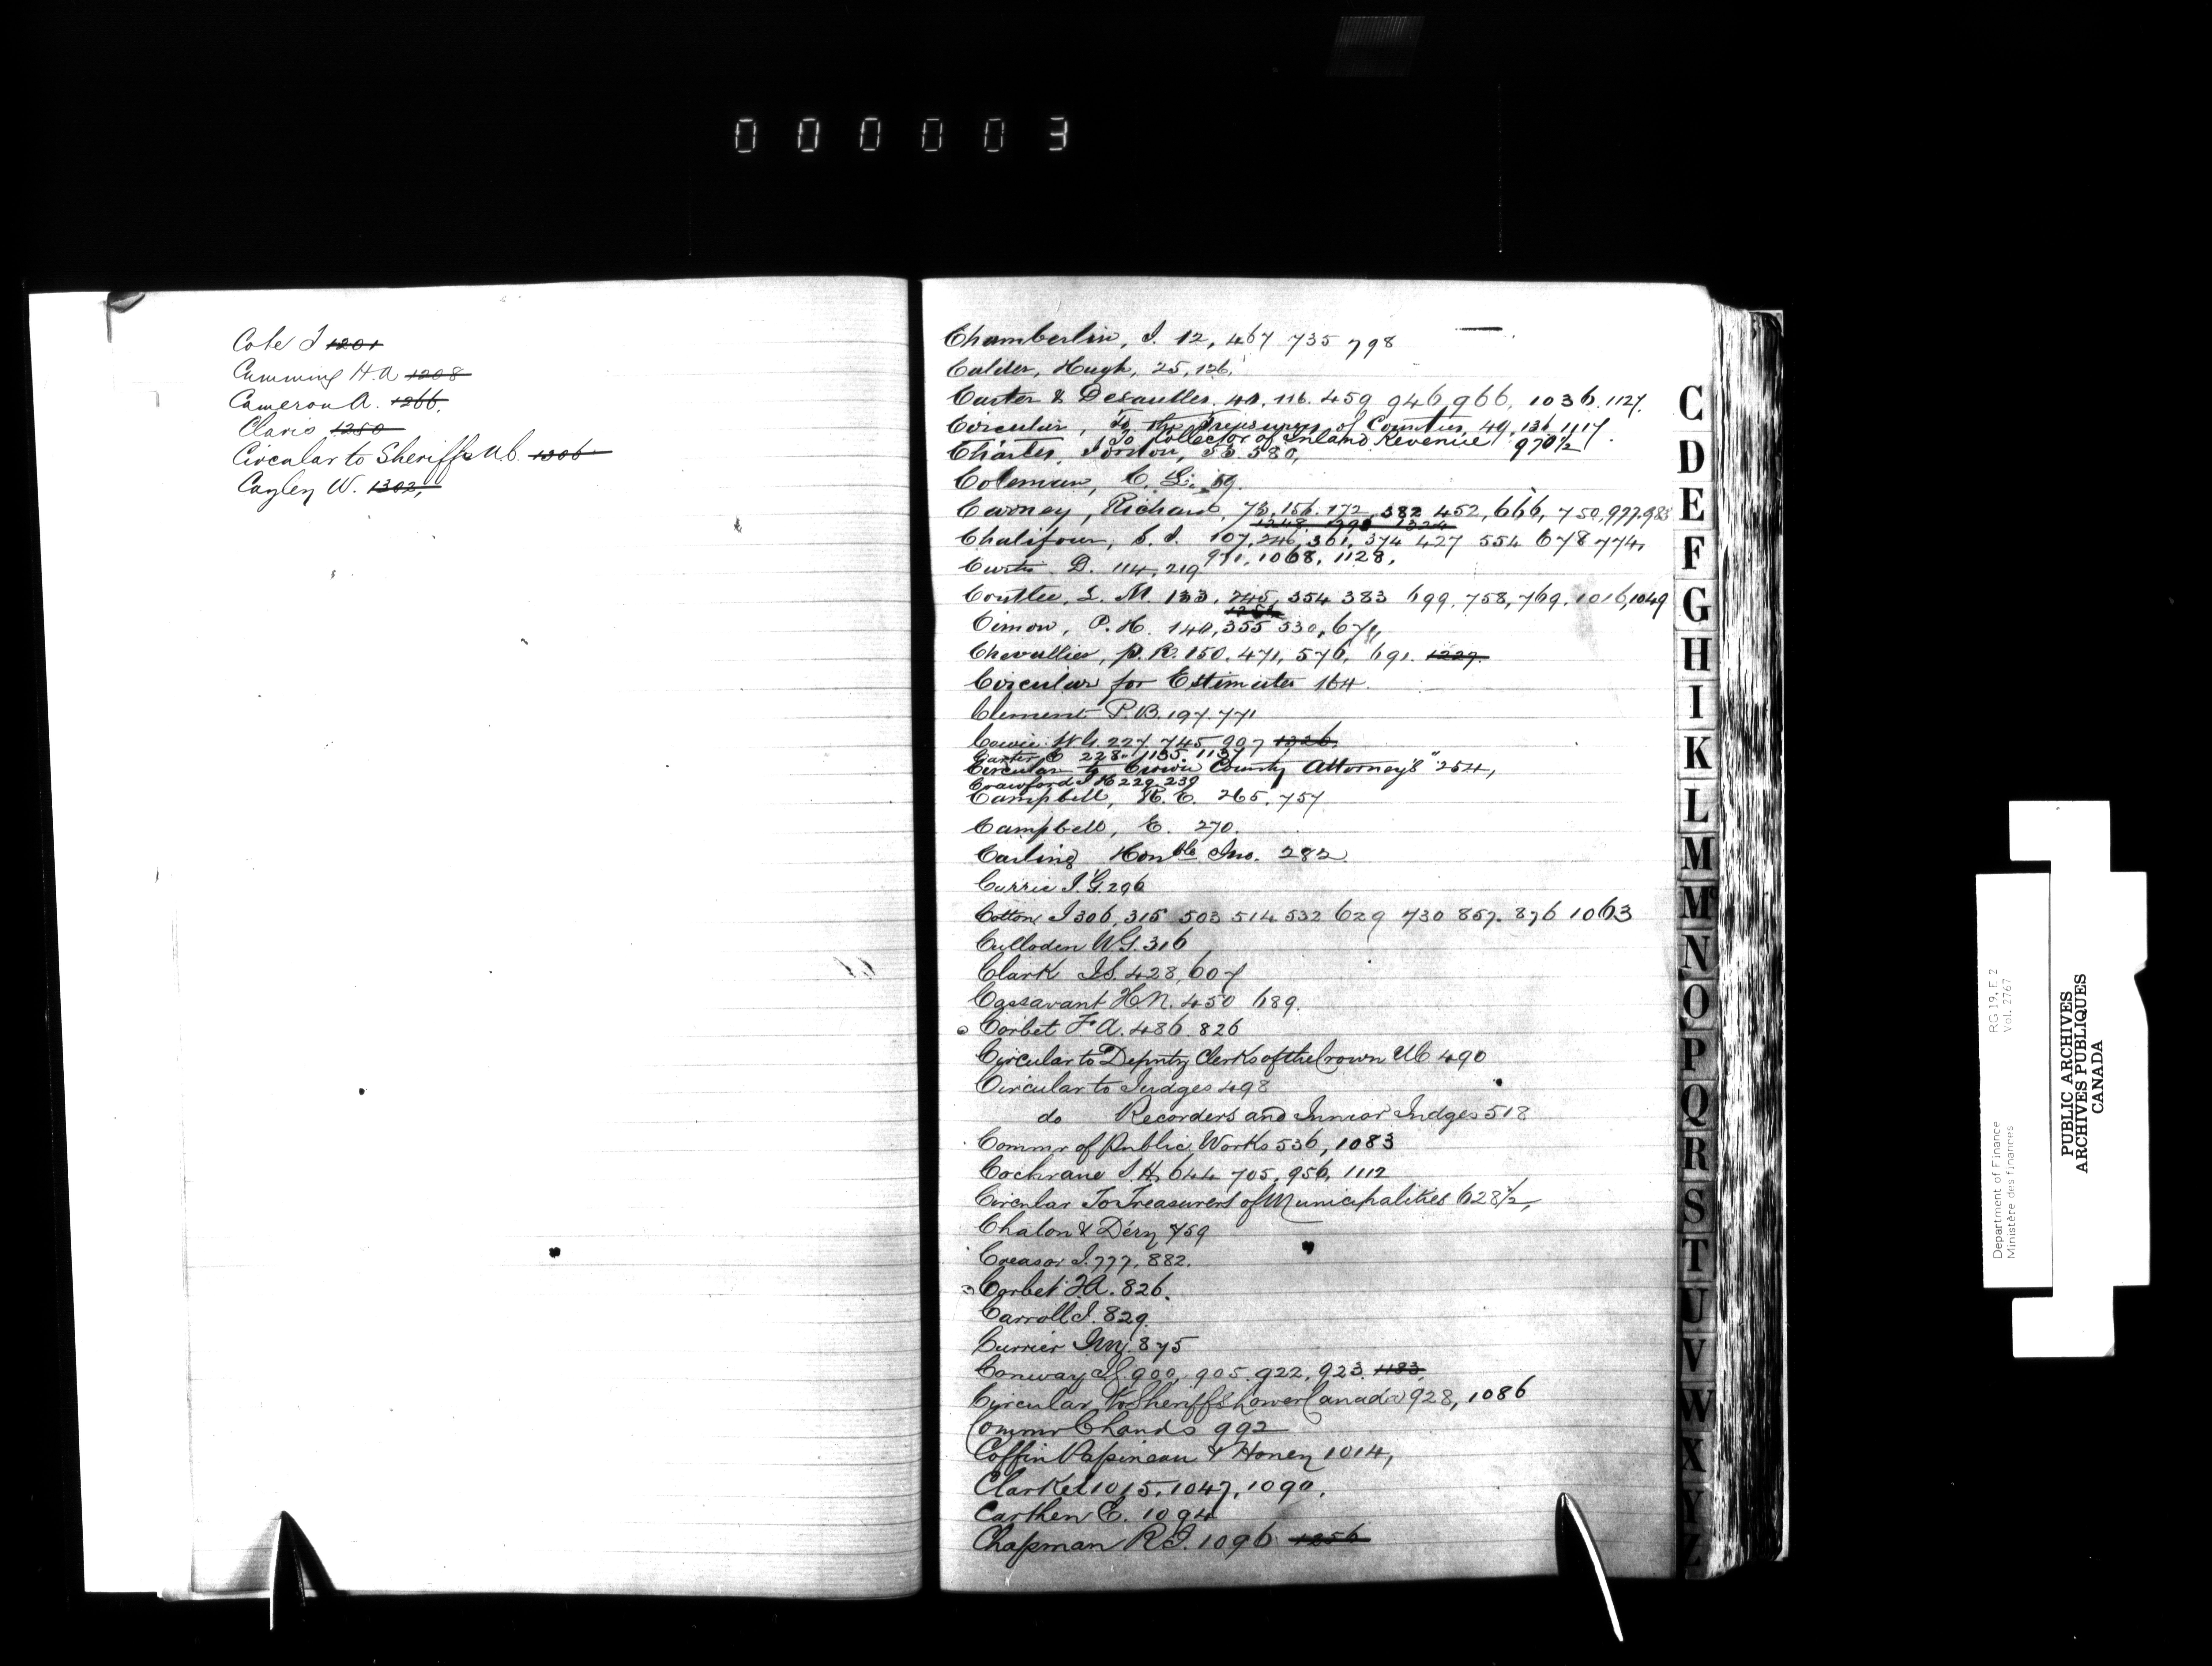 000003
Cote J 1201
Cumming H.A 1208
Cameron A. 1266
Claris 1250
Circular to Sheriffs U.C. 1306
Cayley W. 1302,
Chamberlin, J. 12, 467 735 798
Calder, Hugh, 25, 126,
Carter & Desaulles. 40. 116. 459 946 966, 1036. 1127.
Circular, To the Treasurers of Counties, 49, 136 1117.
To Collector of Inland Revenue 970½
Charter, 580,
Coleman, C. L. 59.
Carney, Richard, 73, 156. 172, 382 452, 666, 750, 977. 983
1248. 1293 1324
Chalifour, S. J. 107, 246, 361, 374 427 554 678 774,
971, 1068, 1128,
Curtis D. 114, 219
Coutlee, L. M. 133, 245, 354 383 699, 758, 769, 1016, 1049
1252
Cimon, P. H. 140, 355 530, 671,
Chevallier, P. R. 150, 471, 576, 691. 1227.
Circular for Estimates 164.
Clement P.B. 197. 771
Cowie W G. 227, 745 907 1326,
Carter E 228. 1135, 1137
Circular to Crown County Attorneys 254,
Crawford J H 229. 239
Campbell, R. C. 265. 757
Campbell, E. 270.
Carling Honble Jno. 282.
Currie J. G 296
Cotton J 306, 315 503 514 532 629 730 857. 876 1063
Culloden W.G. 316
Clark J.S. 428, 607
Cassavant H.N. 450 689.
Corbet F A. 486 826
Circular to Deputy Clerks of the Crown UC 490
Circular to Judges 498
do Recorders and Junior Judges 518
Commr of Public Works 536, 1083
Cochrane J. H. 644 705, 956, 1112
Circular To Treasurers of Municipalities 628½,
Chalon & Déry 759
Creasor J. 777, 882.
Corbet F.A. 826.
Carroll J. 829.
Currier 875
Conway J.G. 900, 905. 922, 923. 1183,
Circular To Sheriffs Lower Canada 928, 1086
Commr C Lands 992
Coffin Papineau & Honey 1014,
Clarke 1015, 1047, 1090,
Carthen E. 1094
Chapman R.J. 1096 1256
C
D
E
F
G
H
I
K
L
M
Mc
N
O
P
Q
R
S
T
U
V
W
X
Y
Z
Department of Finance
Ministère des finances
RG 19, E 2
Vol. 2767
PUBLIC ARCHIVES
ARCHIVES PUBLIQUES
CANADA